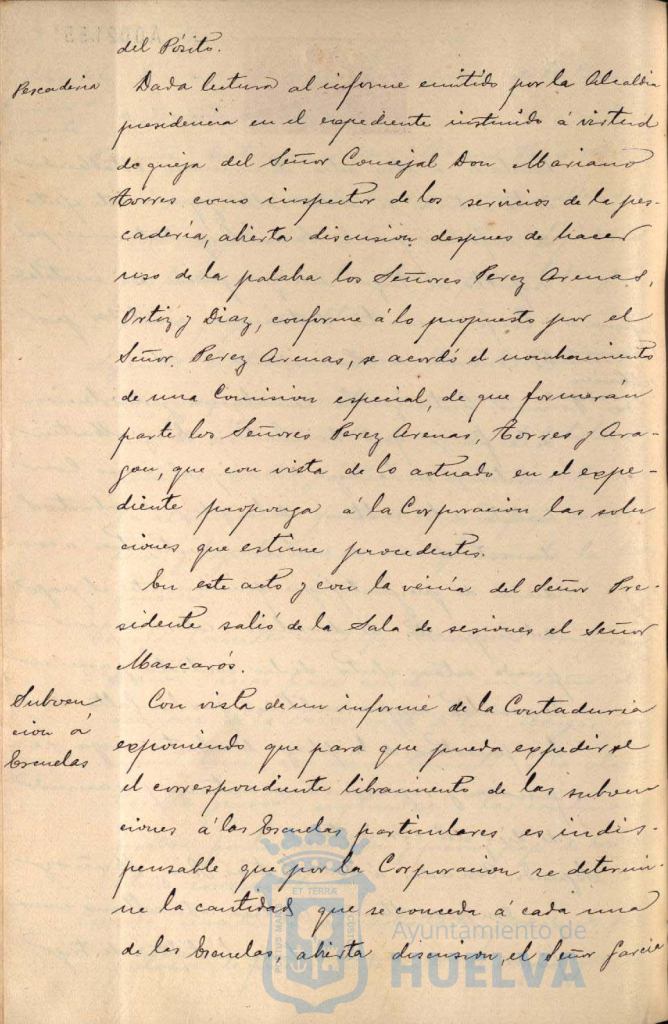 del Pósito.
Pescaderia
Dada lectura al informe emitido por la Alcaldia
presidencia en el expediente instruido á virtud
de queja del Señor Concejal Don Mariano
Torres como inspector de los servicios de la pes-
caderia, abierta discusion despues de hacer
uso de la palabra los Señores Perez Arenas,
Ortiz y Diaz, conforme á lo propuesto por el
Señor Perez Arenas, se acordó el nombramiento
de una Comision especial, de que formerán
parte los Señores Perez Arenas, Torres y Ara-
gon, que con vista de lo actuado en el expe-
diente proponga á la Corporacion las solu
ciones que estime procedentes.
En este acto y con la venia del Señor Pre-
sidente salió de la Sala de sesiones el Señor
Mascarós.
Subven
cion á
Escuelas
Con vista de un informe de la Contaduria
exponiendo que para que pueda expedirse
el correspondiente libramiento de las subven
ciones á las Escuelas particulares es indis-
pensable que por la Corporacion se determi-
ne la cantidad que se conceda á cada una
de las Escuelas, abierta discusion, el Señor Garcia
ET TERRÆ
Ayuntamiento de
HUELVA